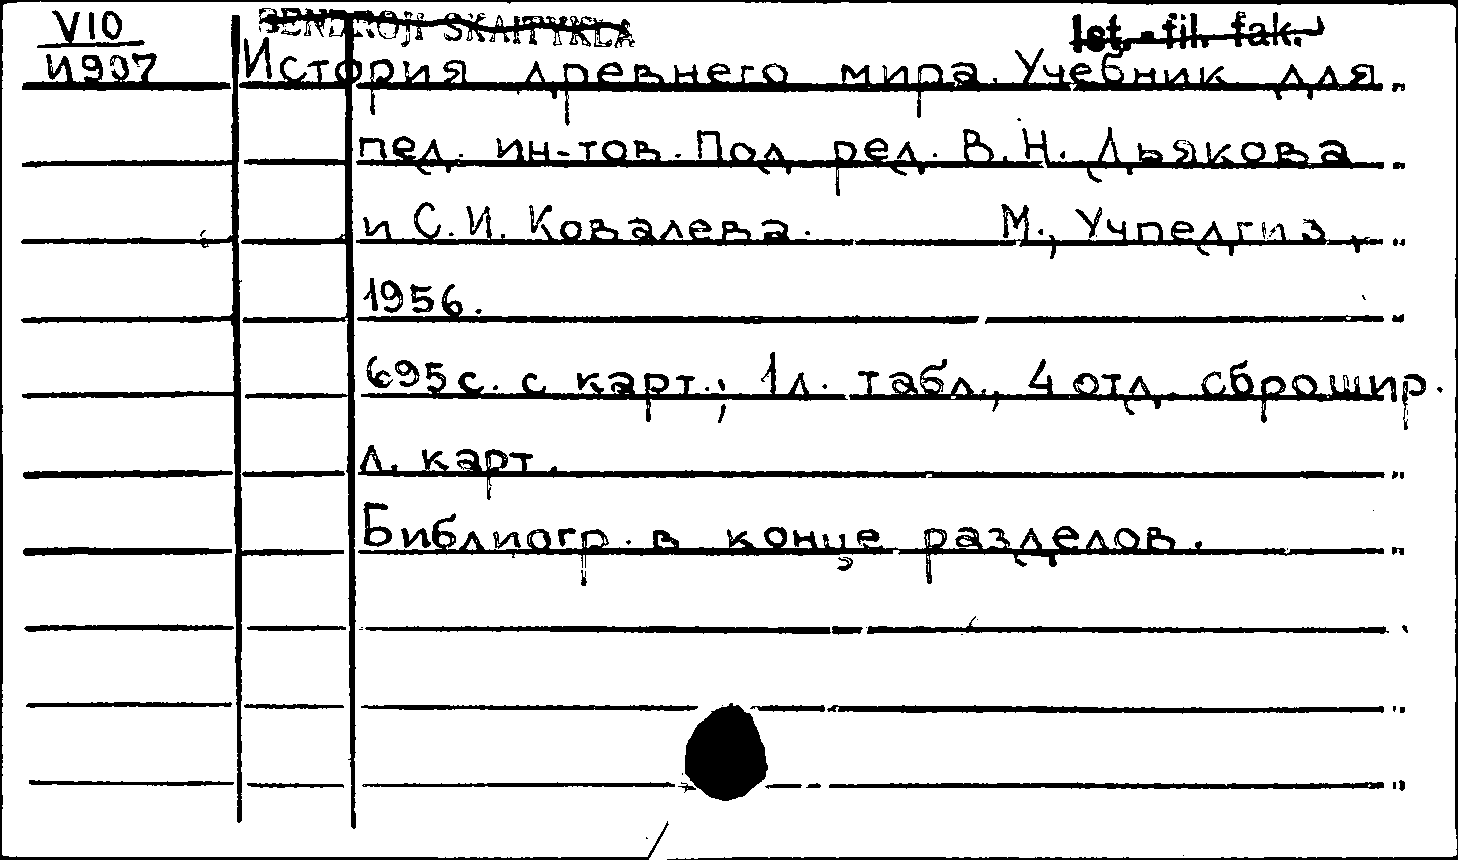 V10
И907
BENDROJI SKAITYKLA
Ist.-fil. fak.
История древнего мира. Учебник для
пед. ин-тов. Под ред. В.Н. Дьякова
и С.И. Ковалева. М., Учпедгиз,
1956.
695с. с карт.; 1л. табл., 4 отд. сброшир.
л. карт.
Библиогр. в конце разделов.